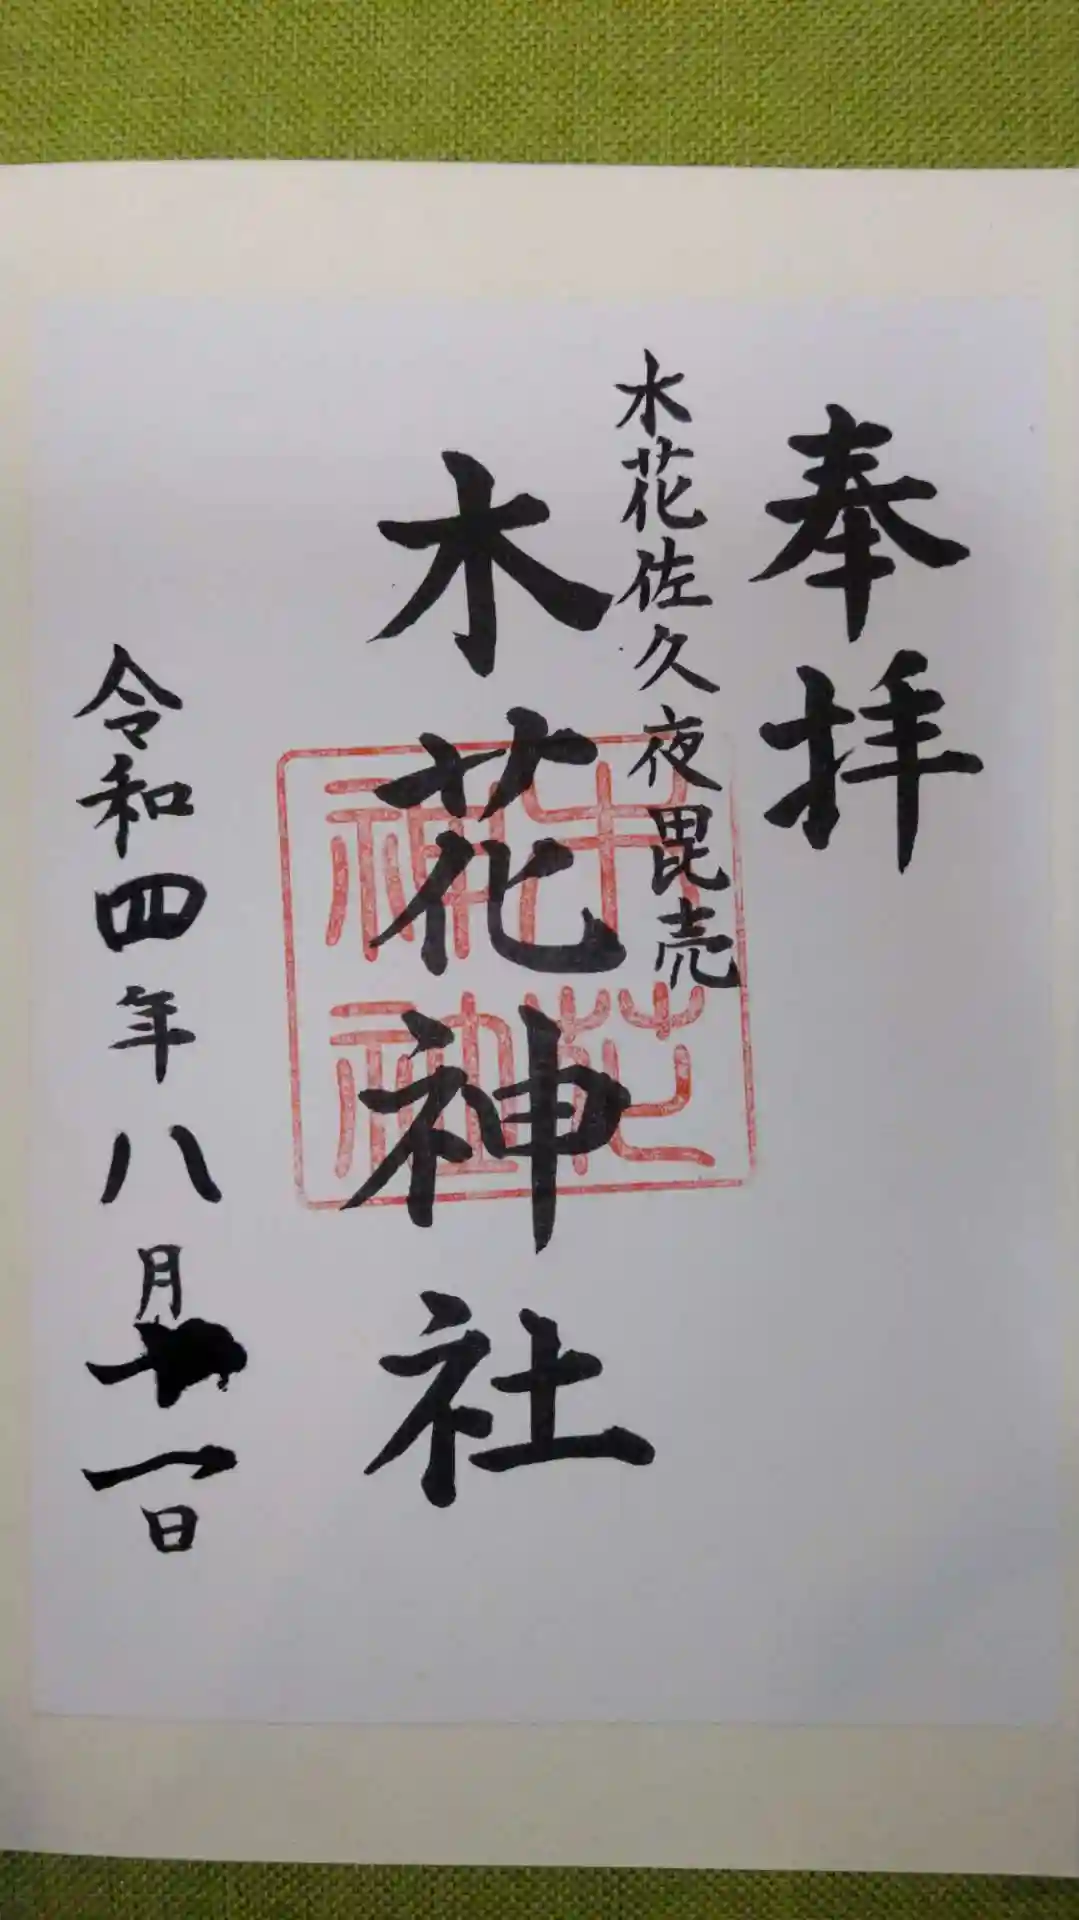 奉拝
木花佐久夜毘売
木花神社
木花神社
令和四年八月十一日